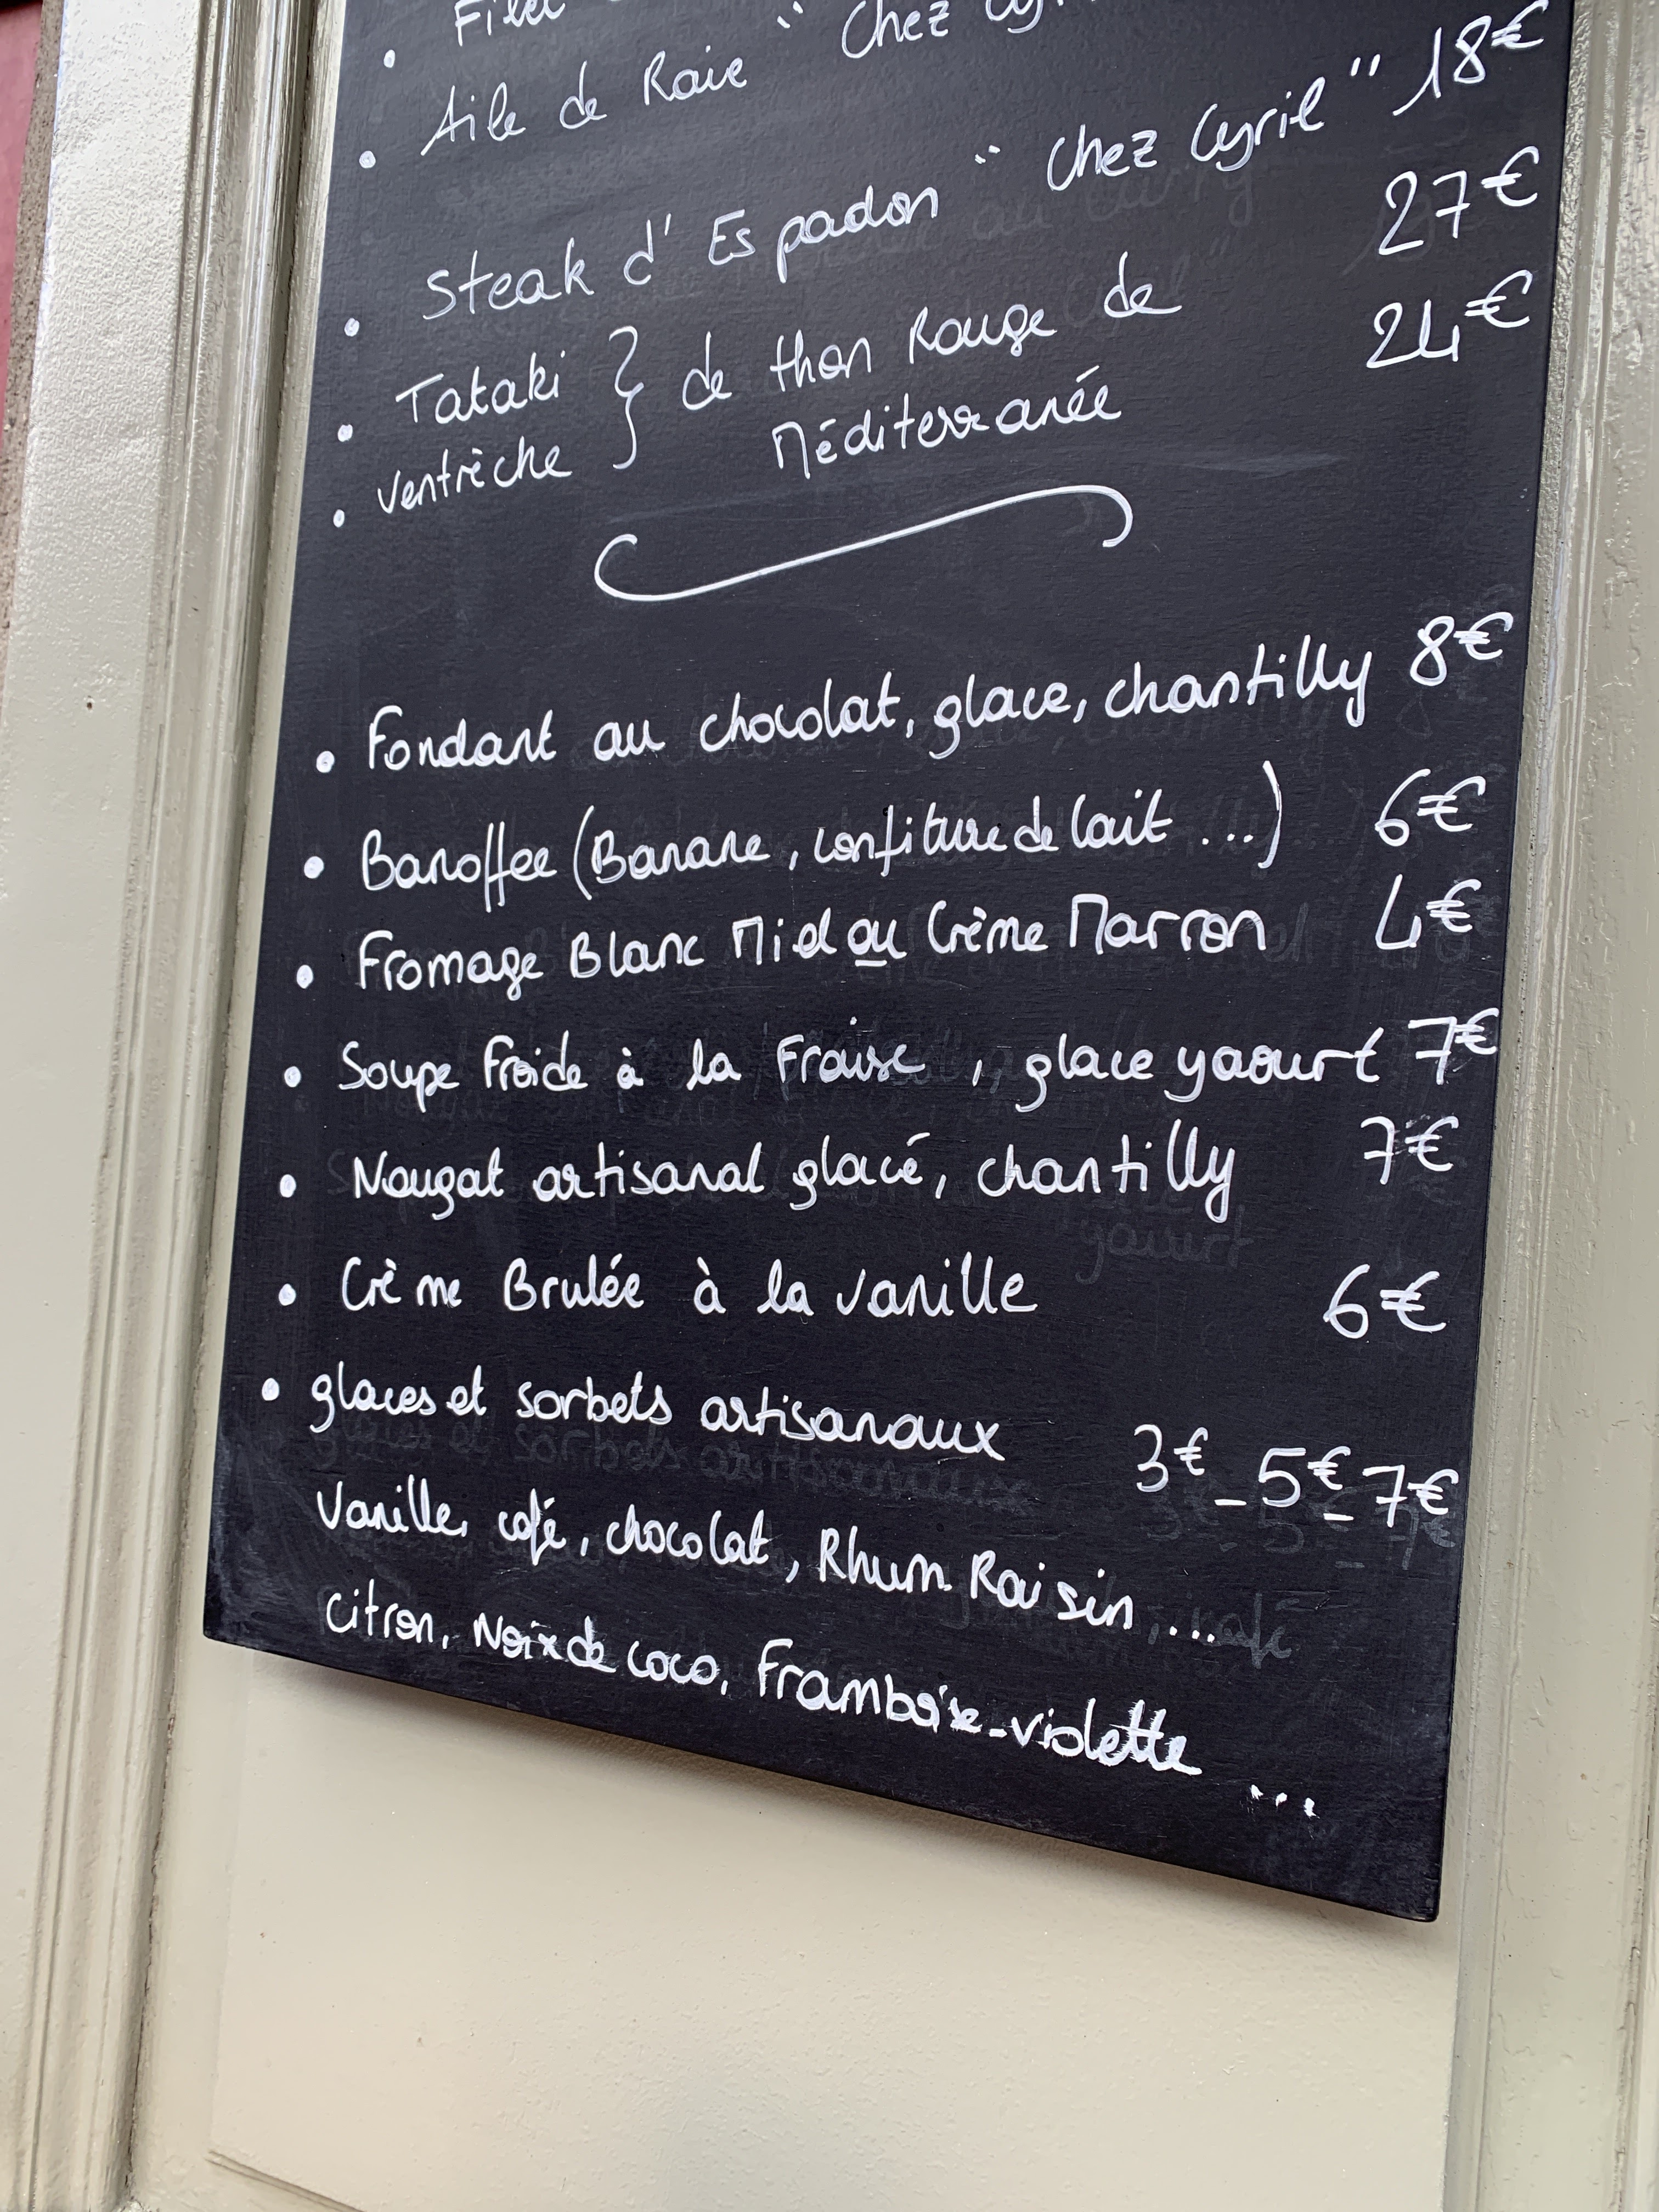 • Filet
• Aile de Raie " Chez Cyril
• Steak d'Espadon " Chez Cyril " 18€
• Tataki } de thon Rouge de 27€
• ventrèche Méditerranée 24€
• Fondant au chocolat, glace, chantilly 8€
• Banoffee (Banane, confiture de lait ...) 6€
• Fromage Blanc Miel ou Crème Marron 4€
• Soupe Froide à la Fraise, glace yaourt 7€
• Nougat artisanal glacé, chantilly 7€
• Crème Brulée à la vanille 6€
• glaces et sorbets artisanaux 3€ - 5€ - 7€
Vanille, café, chocolat, Rhum Raisin...
citron, Noix de coco, Framboise-violette ...